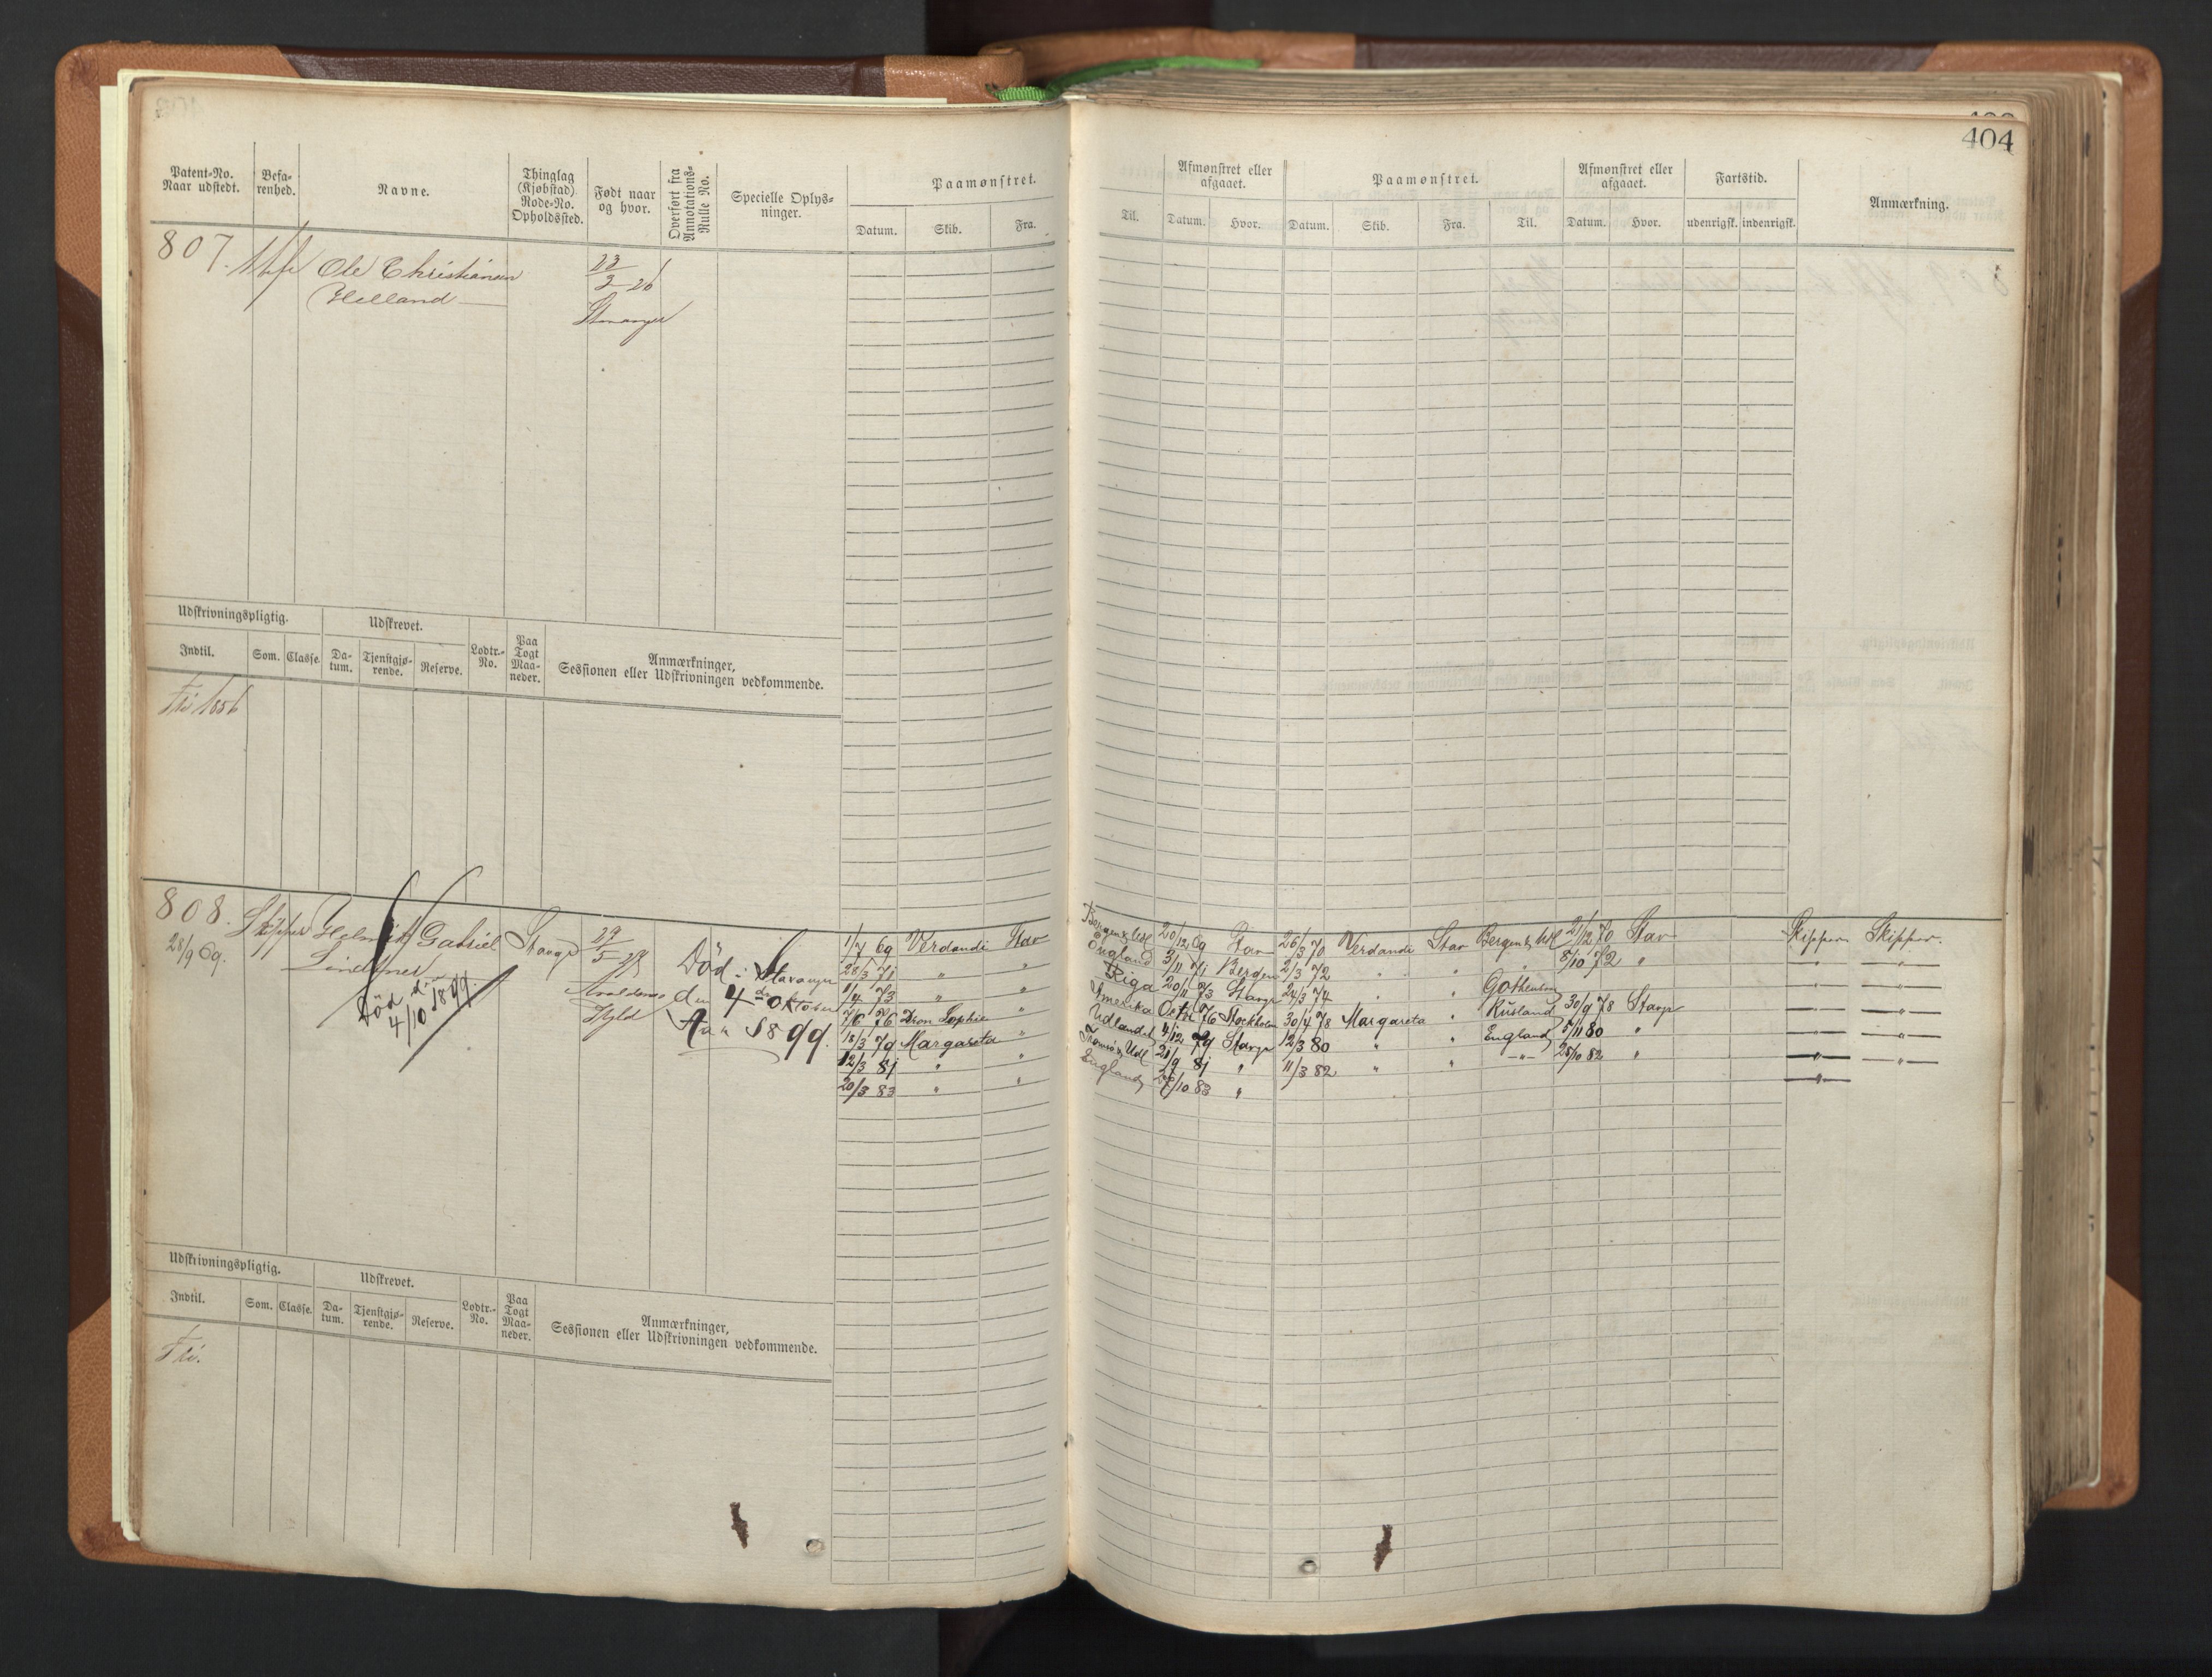 404
Patent-No. Naar udstedt.
Befa-renhed.
Navne.
Thinglag (Kjøbstad) Rode-No. Opholdssted.
Født naar og hvor.
Overført fra Annotations-Rulle No.
Specielle Oplys-ninger.
Paamønstret.
Datum. Skib. Fra.
Til.
Afmønstret eller afgaaet.
Datum. Hvor.
Paamønstret.
Datum. Skib. Fra. Til.
Afmønstret eller afgaaet.
Datum. Hvor.
Fartstid.
udenrigsk. indenrigsk.
Anmærkning.
807. Ole Christiansen
Helland
23/3 26
Stavanger
Udskrivningspligtig. Udskrevet.
Indtil. Som. Classe. Da-tum. Tjenstgjø-rende. Reserve. Lodtr.-No. Paa Togt Maa-neder.
Anmærkninger, Sessionen eller Udskrivningen vedkommende.
Fri 1856
808. Skipper Helmik Gabriel
28/9 69. Lindtner
29/5
Død d.
4/10 1899.
Død i Stavanger
den 4de Oktober
Aar 1899.
1/7 69 Verdandi Stav
28/3 71 " "
1/4 73 " "
7/6 76 Dron Sophie "
18/3 79 Margareta "
12/3 81 " "
20/3 83 " "
20/12 69 Stav 26/3 70 Verdandi Stav 21/12 70 Stav Skipper Skipper.
England 3/11 71 Bergen 2/3 72 " " " 8/10 72 " " "
Riga 20/11 73 Stavgr 24/3 74 " " Gothenborg " "
Amerika Octr 76 Stockholm 30/4 78 Margareta " Rusland 30/9 78 Stavgr " "
Udlandet 4/12 79 Stavgr 12/3 80 " " England 5/11 80 " " "
Tromsø & Udl 21/9 81 " 11/3 82 " " " 25/10 82 " " "
England /10 83 " "
Udskrivningspligtig. Udskrevet.
Indtil. Som. Classe. Da-tum. Tjenstgjø-rende. Reserve. Lodtr.-No. Paa Togt Maa-neder.
Anmærkninger, Sessionen eller Udskrivningen vedkommende.
Fri.